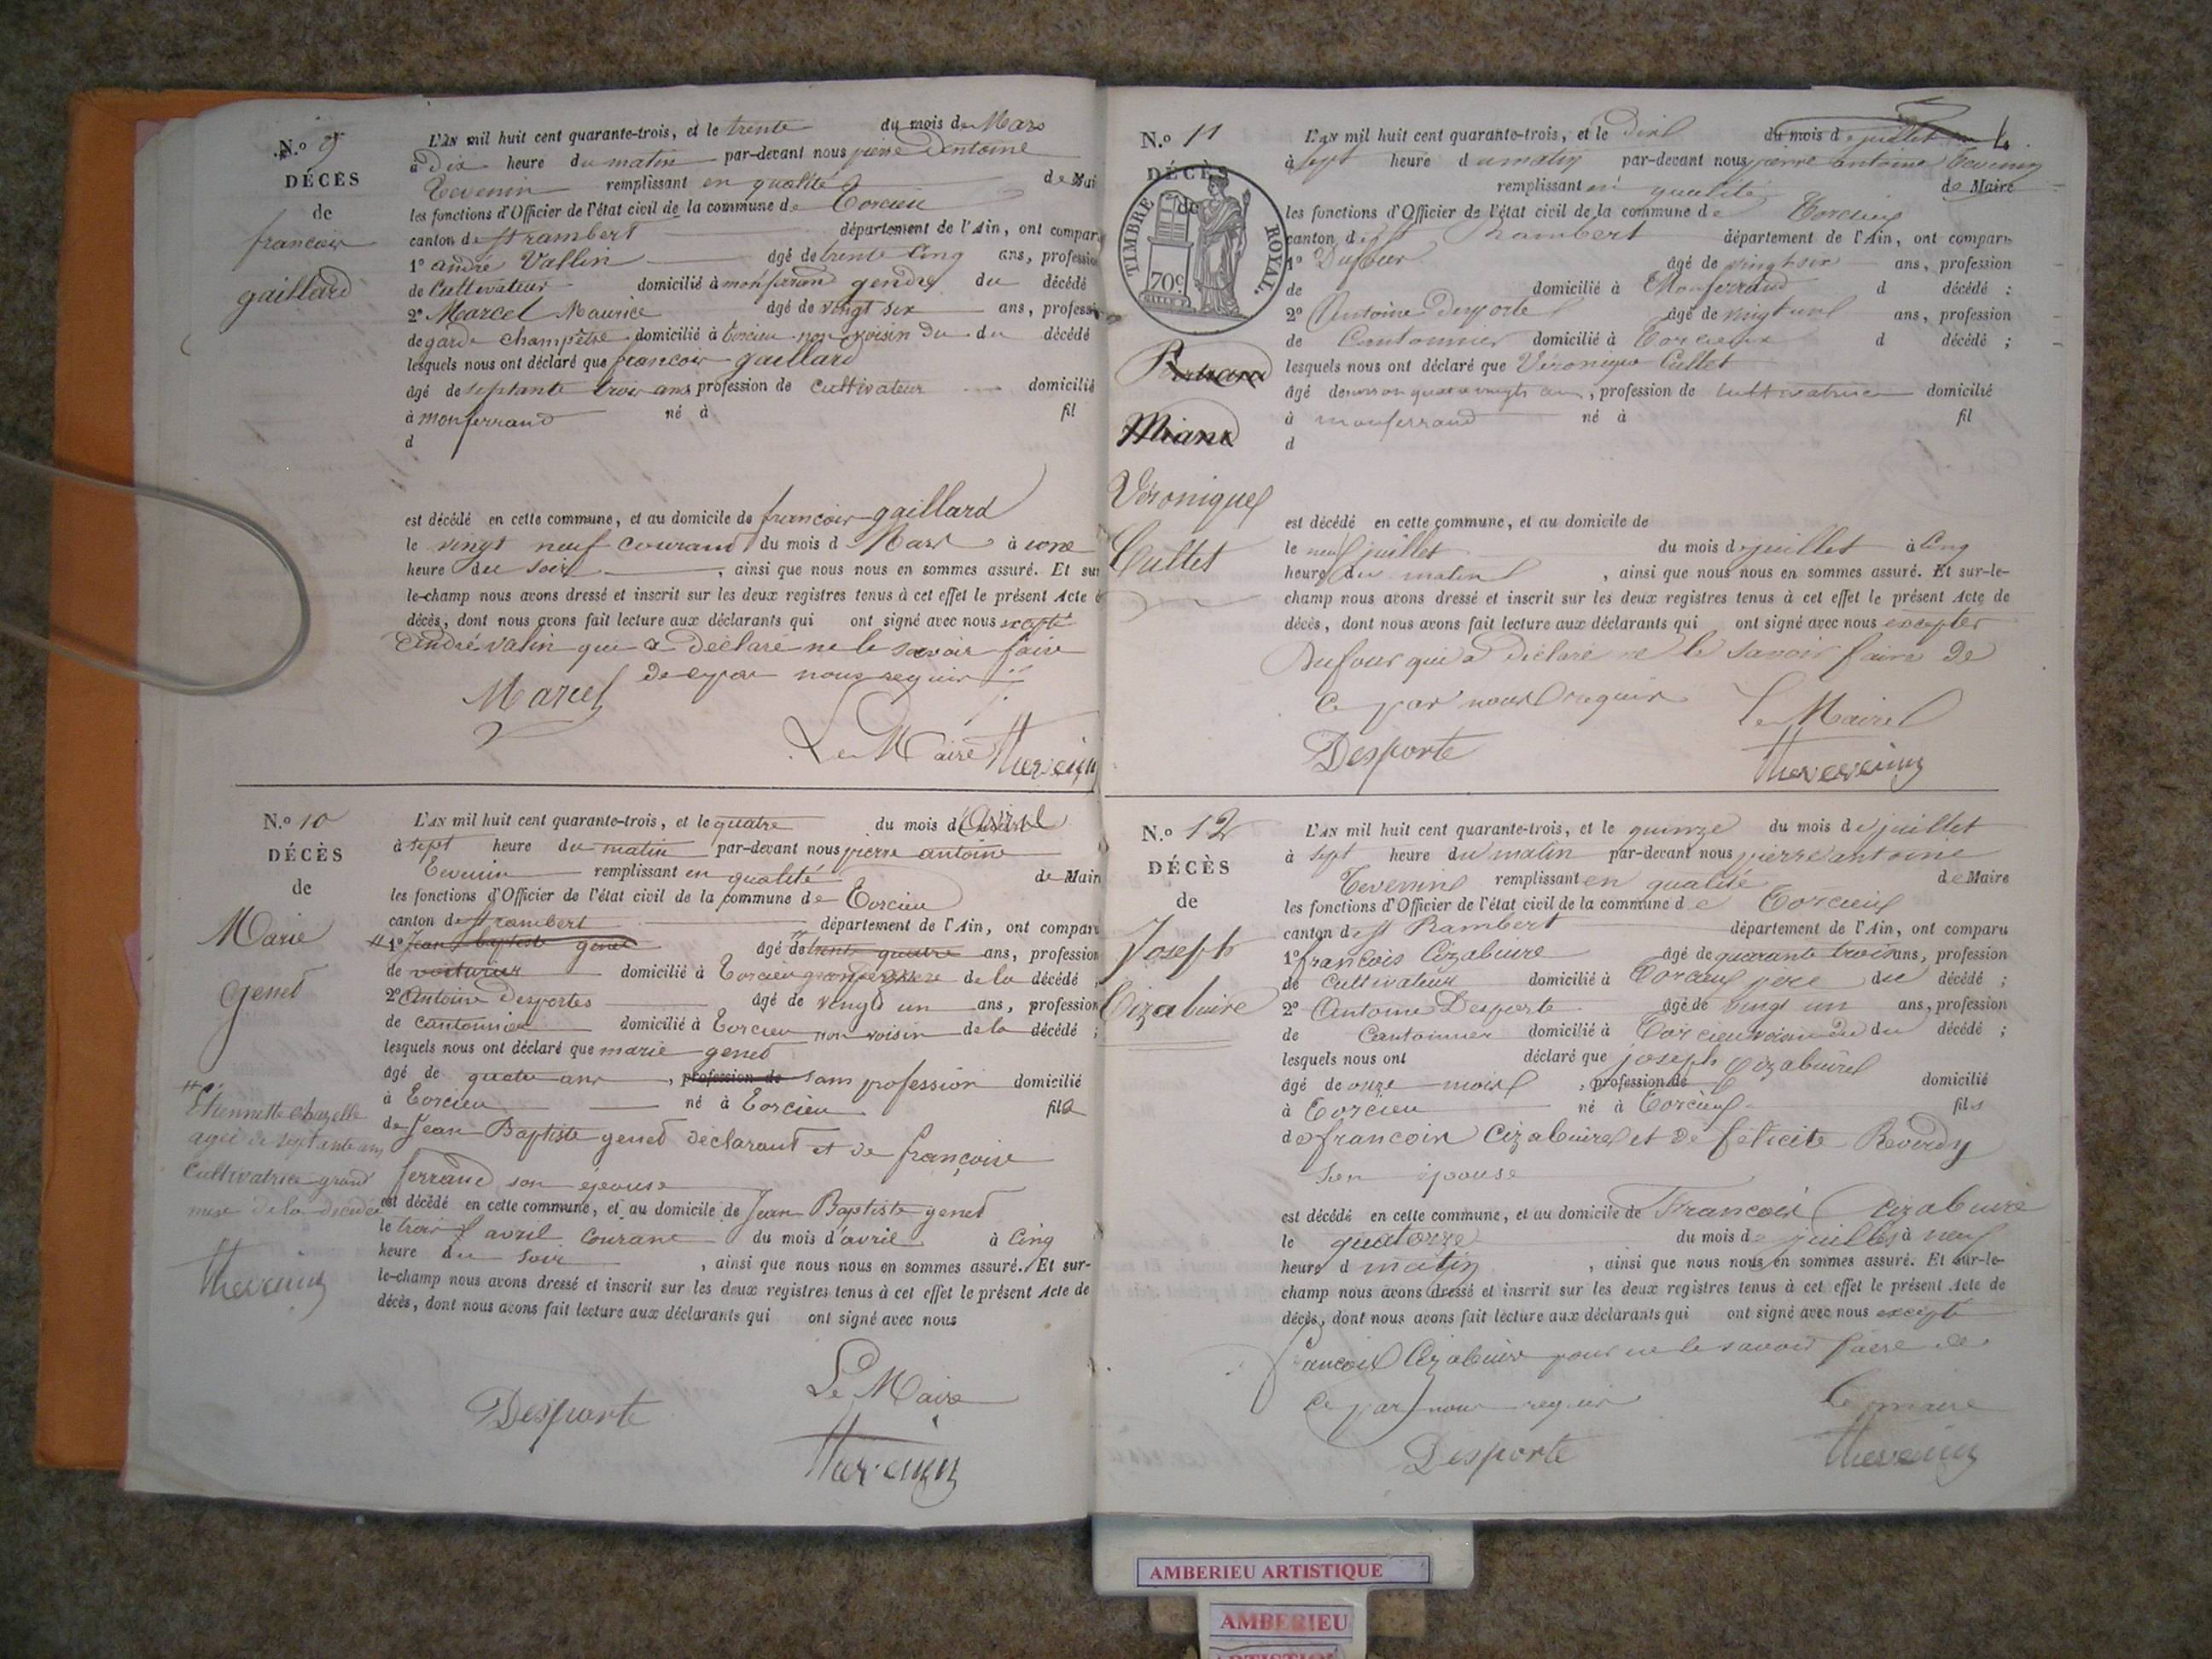 N.o 9
DÉCÈS
de
francois
gaillard
L'AN mil huit cent quarante-trois, et le trente du mois de Mars
à Dix heure du matin par-devant nous pierre antoine
Tevenin remplissant en qualité de Mai
les fonctions d'Officier de l'état civil de la commune de Torcieu
canton de st rambert département de l'Ain, ont compar
1o andré Vallin âgé de trente cinq ans, professio
de Cultivateur domicilié à monferrand gendre du décédé
2o Marcel Maurice âgé de vingt six ans, professi
de garde champêtre domicilié à Torcieu non voisin du décédé
lesquels nous ont déclaré que francois gaillard
âgé de septante trois ans profession de cultivateur domicilié
à monferrand né à fil
d
est décédé en cette commune, et au domicile de francois gaillard
le vingt neuf courant du mois d Mars à une
heure du soir , ainsi que nous nous en sommes assuré. Et sur
le-champ nous avons dressé et inscrit sur les deux registres tenus à cet effet le présent Acte
décès, dont nous avons fait lecture aux déclarants qui ont signé avec nous excepté
andré valin qui a Déclaré ne le savoir faire
de ce par nous requis
Marcel
Le Maire Thevenin
N.o 10
DÉCÈS
de
Marie
genet
L'AN mil huit cent quarante-trois, et le quatre du mois d avril
à sept heure du matin par-devant nous pierre antoine
Tevenin remplissant en qualité de Mair
les fonctions d'Officier de l'état civil de la commune de Torcieu
canton de st rambert département de l'Ain, ont comparu
1o Jean baptiste genet âgé de trente quatre ans, profession
de voiturier domicilié à Torcieu de la décédé ;
2o Antoine Desportes âgé de vingt un ans, profession
de cantonnier domicilié à Torcieu non voisin de la décédé ;
lesquels nous ont déclaré que marie genet
âgé de quatre ans , profession de sans profession domicilié
à Torcieu né à Torcieu fille
de Jean Baptiste genet déclarant et de françoise
ferrand son épouse
est décédé en cette commune, et au domicile de Jean Baptiste genet
le trois avril courant du mois d'avril à cinq
heure du soir , ainsi que nous nous en sommes assuré. Et sur-
le-champ nous avons dressé et inscrit sur les deux registres tenus à cet effet le présent Acte de
décès, dont nous avons fait lecture aux déclarants qui ont signé avec nous
Étiennette chazelle
agée de septante ans
cultivatrice grand
mere de la décédée
Thevenin
Le Maire
Desporte
Thevenin
N.o 11
DÉCÈS
de
TIMBRE ROYAL.
70c
Véronique
Cullet
L'AN mil huit cent quarante-trois, et le dix du mois de juillet
à sept heure du matin par-devant nous pierre antoine Tevenin
remplissant en qualité de Maire
les fonctions d'Officier de l'état civil de la commune de Torcieu
canton de st Rambert département de l'Ain, ont comparu
1o Dufour âgé de vingt six ans, profession
de domicilié à Monferrand d décédé :
2o Antoine Desporte âgé de vingt un ans, profession
de Cantonnier domicilié à Torcieu d décédé ;
lesquels nous ont déclaré que Véronique Cullet
âgé de environ quatre vingts ans , profession de cultivatrice domicilié
à monferrand né à fil
d
est décédé en cette commune, et au domicile de
le neuf juillet du mois de juillet à cinq
heure du matin , ainsi que nous nous en sommes assuré. Et sur-le-
champ nous avons dressé et inscrit sur les deux registres tenus à cet effet le présent Acte de
décès, dont nous avons fait lecture aux déclarants qui ont signé avec nous excepter
Dufour qui a Déclaré ne le savoir faire De
Ce par nous requis
Le Maire
Desporte
Thevenin
N.o 12
DÉCÈS
de
Joseph
Cizabuire
L'AN mil huit cent quarante-trois, et le quinze du mois de juillet
à sept heure du matin par-devant nous pierre antoine
Tevenin remplissant en qualité de Maire
les fonctions d'Officier de l'état civil de la commune de Torcieu
canton de st Rambert département de l'Ain, ont comparu
1o francois Cizabuire âgé de quarante trois ans, profession
de cultivateur domicilié à Torcieu père du décédé ;
2o Antoine Desporte âgé de vingt un ans, profession
de Cantonnier domicilié à Torcieu voisin du décédé ;
lesquels nous ont déclaré que joseph Cizabuire
âgé de onze mois , profession de domicilié
à Torcieu né à Torcieu fils
de francois Cizabuire et de félicité Reverdy
son épouse
est décédé en cette commune, et au domicile de Francois Cizabuire
le quatorze du mois de juillet à neuf
heure d matin , ainsi que nous nous en sommes assuré. Et sur-le-
champ nous avons dressé et inscrit sur les deux registres tenus à cet effet le présent Acte de
décès, dont nous avons fait lecture aux déclarants qui ont signé avec nous excepté
francois Cizabuire pour ne le savoir faire de
Ce par nous requis
Le maire
Desporte
Thevenin
AMBERIEU ARTISTIQUE
AMBERIEU
ARTISTIQUE